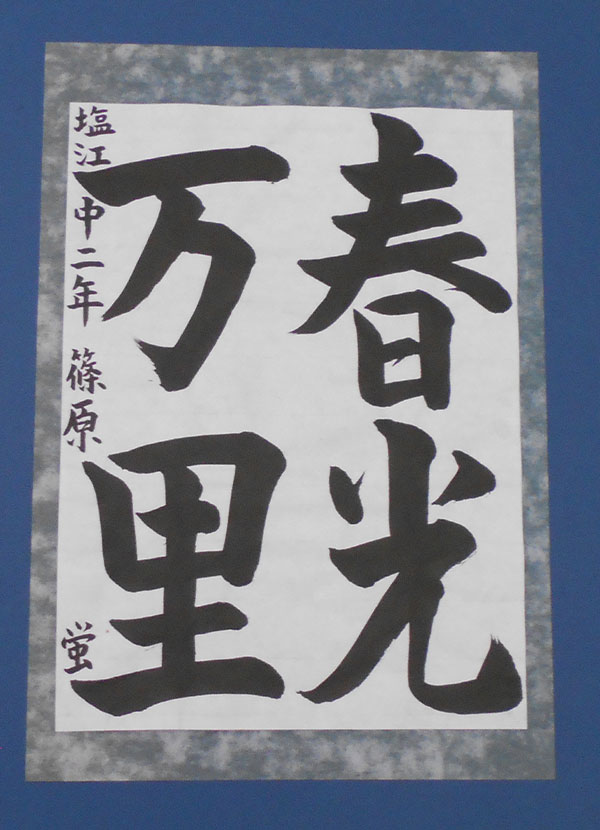 春光
万里
塩江中二年 篠原 蛍